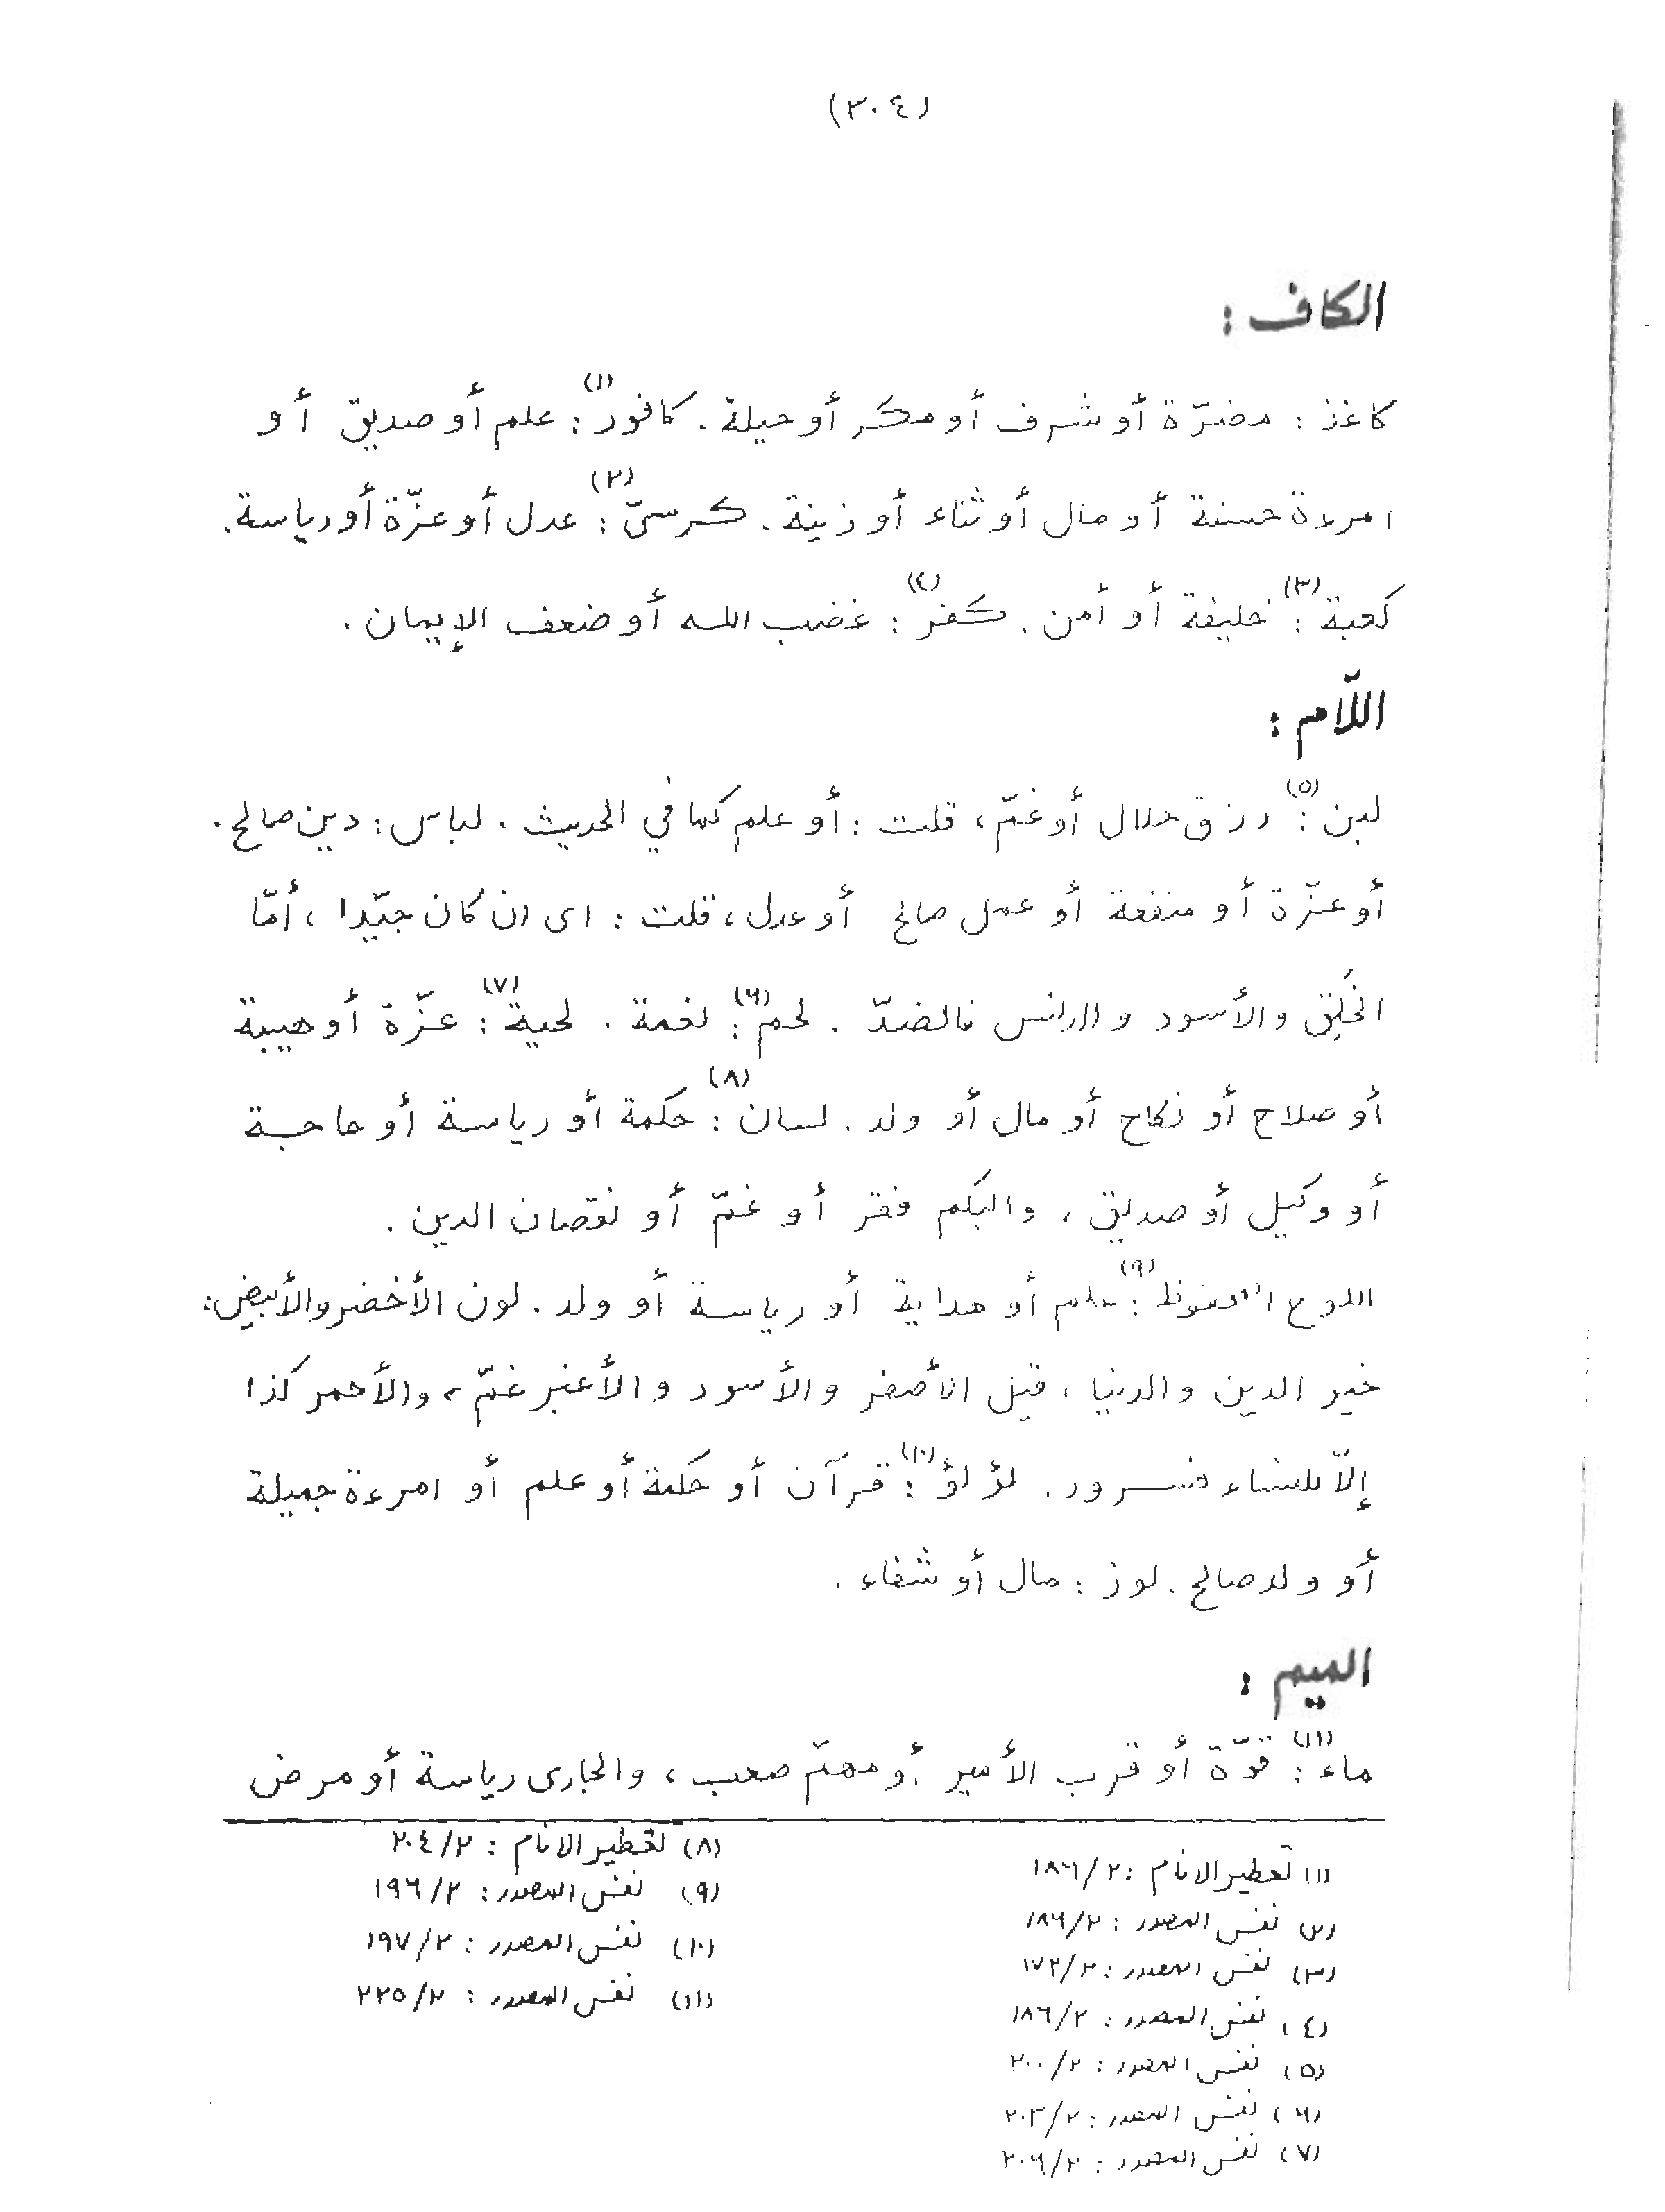 (٣٠٤)
الكاف :
كاغذ : مضرّة أو شرف أو مكر أو حيلة . كافور(١) : علم أو صديق أو
امرءة حسنة أو مال أو ثناء أو زينة . كرسيّ(٢) : عدل أو عزّة أو رياسة .
كعبة(٣) : خليفة أو أمن . كفر(٤) : غضب الله أو ضعف الإيمان .
اللّام :
لبن(٥) : رزق حلال أو غمّ ، قلت : أو علم كما في الحديث . لباس : دين صالح .
أو عزّة أو منفعة أو عمل صالح أو عدل ، قلت : اى ان كان جيّدا ، أمّا
الخَلِق والأسود والدانس فالضدّ . لحم(٦) : نعمة . لحية(٧) : عزّة أو هيبة
أو صلاح أو نكاح أو مال أو ولد . لسان(٨) : حكمة أو رياسة أو حاجبة
أو وكيل أو صديق ، والبكم فقر أو غمّ أو نقصان الدين .
اللوح المحفوظ(٩) : علم أو هداية أو رياسة أو ولد . لون الأخضر والأبيض :
خير الدين والدنيا ، قيل الأصفر والأسود والأغبر غمّ ، والأحمر كذا
إلاّ للنساء فسرور . لؤلؤ(١٠) : قرآن أو حكمة أو علم أو امرءة جميلة
أو ولد صالح . لوز : مال أو شفاء .
الميم :
ماء(١١) : قوّة أو قرب الأمير أو مهمّ صعب ، والجارى رياسة أو مرض
(١) تعطير الانام : ١٨٦/٢
(٢) نفس المصدر : ١٨٦/٢
(٣) نفس المصدر : ١٧٢/٢
(٤) نفس المصدر : ١٨٦/٢
(٥) نفس المصدر : ٢٠٠/٢
(٦) نفس المصدر : ٢٠٣/٢
(٧) نفس المصدر : ٢٠٦/٢
(٨) تعطير الانام : ٢٠٤/٢
(٩) نفس المصدر : ١٩٦/٢
(١٠) نفس المصدر : ١٩٧/٢
(١١) نفس المصدر : ٢٢٥/٢